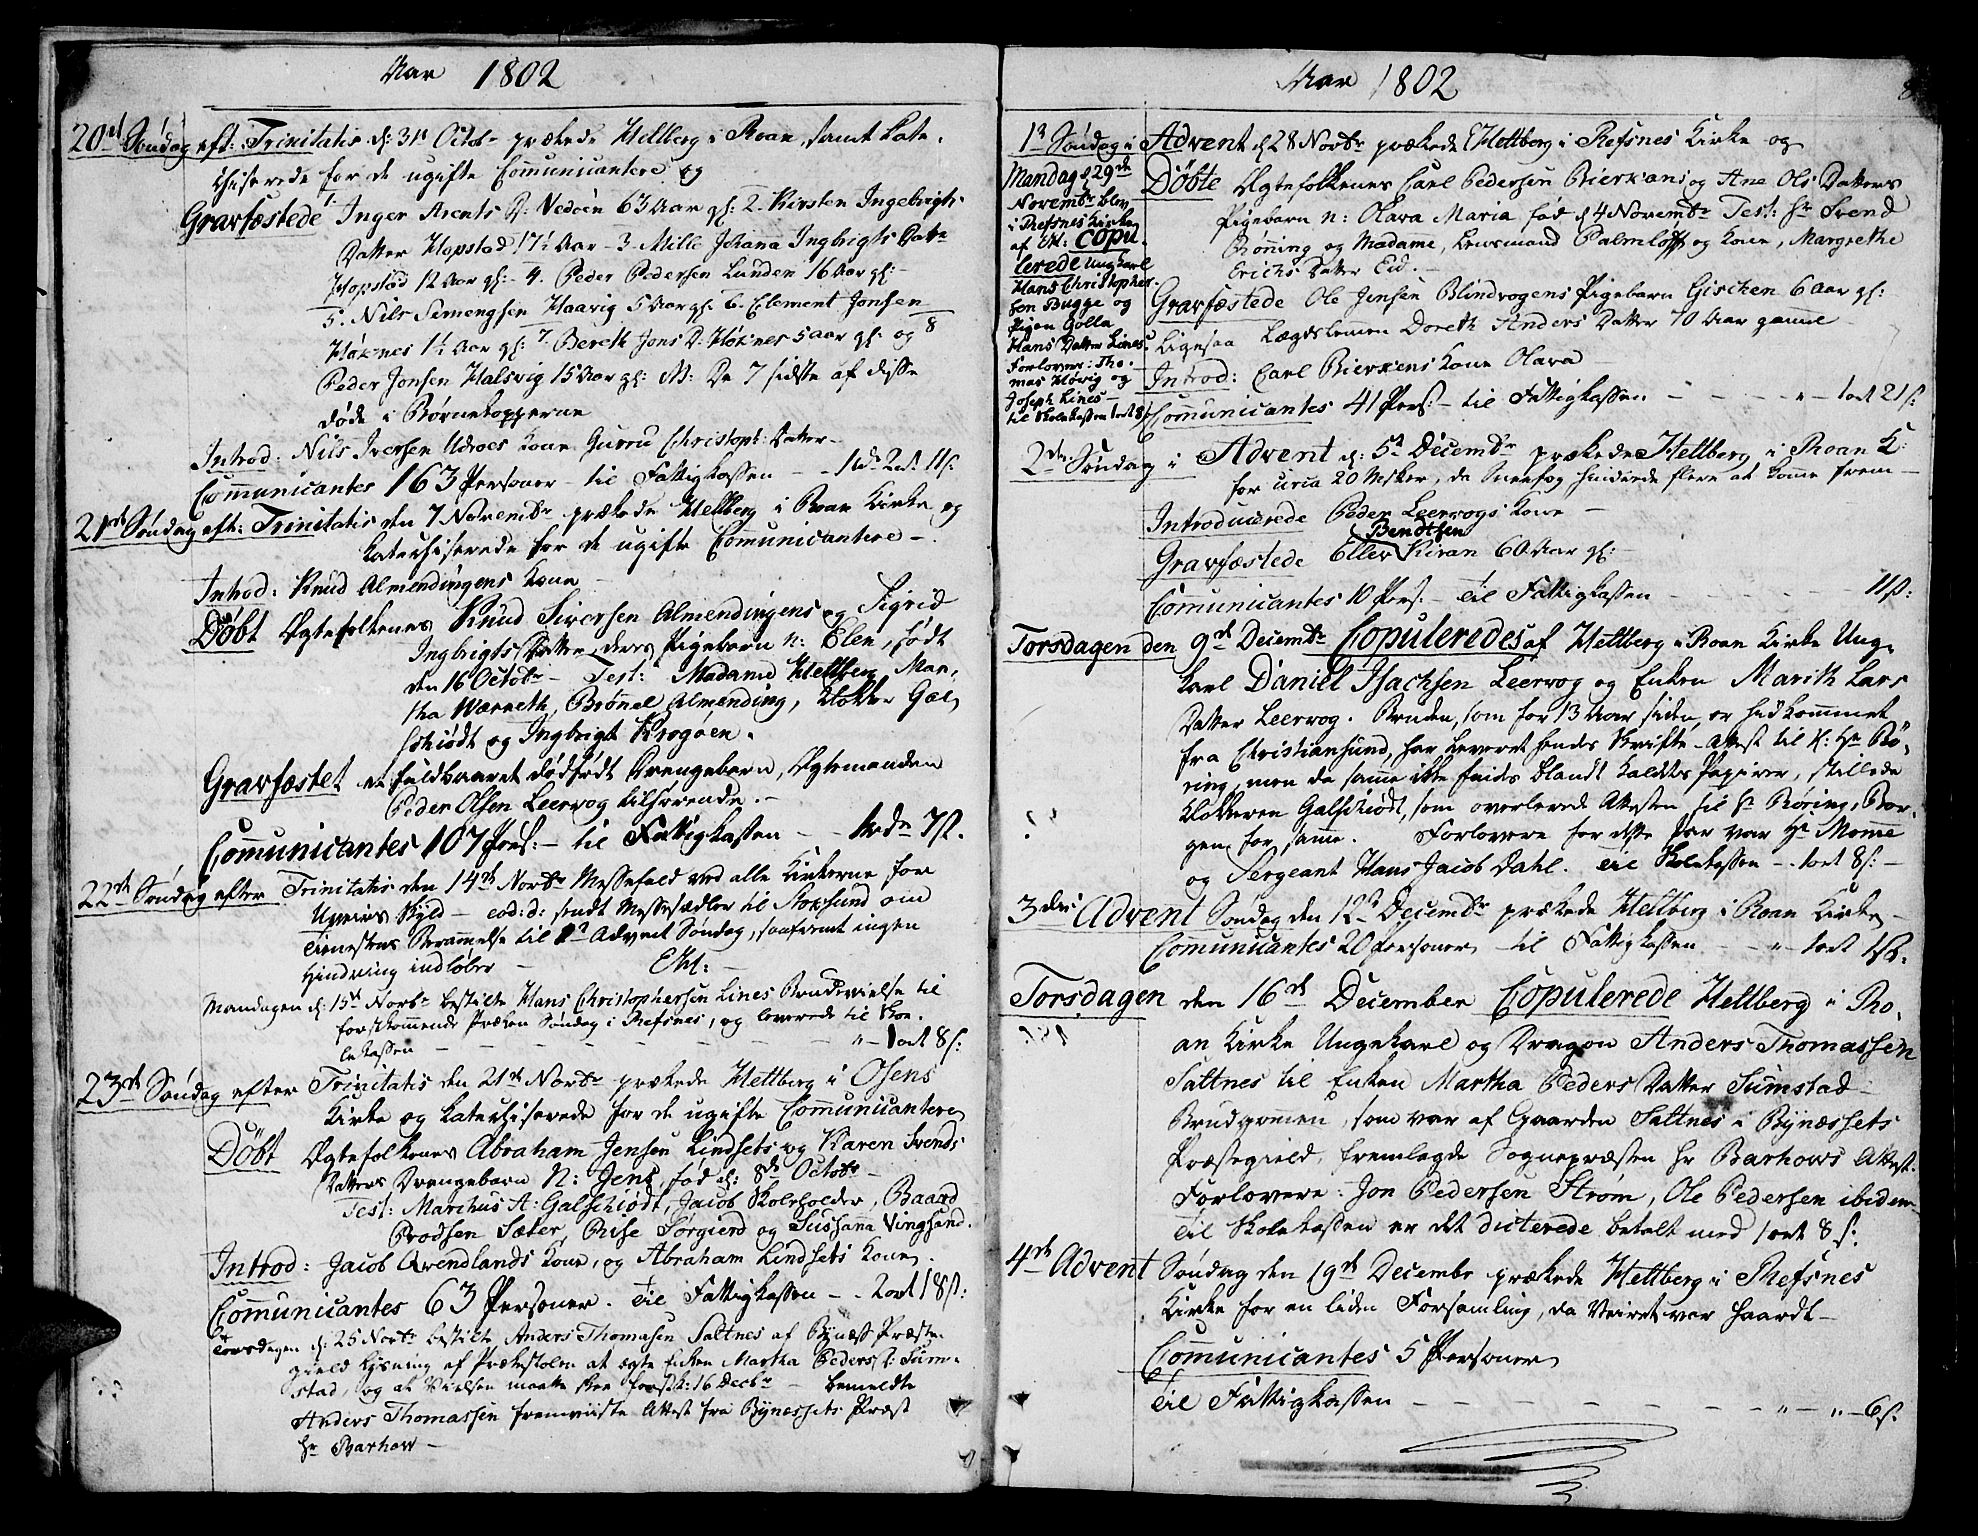 Aar 1802
20de Søndag eft: Trinitatis d: 31te Octobr prækede Hellberg i Roan, samt Kate-
chiserede for de ugifte Communicantere og
Gravfæstede, Inger Arents D: Vedøen 63 Aar gl: 2. Kirsten Ingebrigts
Datter Hopstad 17½ Aar - 3. Mille Johana Ingbrigts Dattr
Hopstad 12 Aar gl: - 4. Peder Pedersen Lunden 16 Aar gl: -
5. Nils Simengsen Haarvig 5 Aar gl: 6. Clement Jonsen
Høknes 1½ Aar gl: 7. Bereth Jons D: Høknes 5 Aar gl: og 8
Peder Jonsen Halsvig 15 Aar gl: N: De 7 sidste af disse
døde i Børnekopperne
Introd: Nils Iversen Udroes Kone Gurru Christoph: Datter -
Communicantes 163 Personer - til Fattigkassen - - 1rdr 2ort 11s:
21de Søndag eft: Trinitatis den 7 Novembr prækede Hellberg i Roan Kirke og
Katechiserede for de ugifte Communicantere -
Introd: Knud Almendingens Kone -
Døbt Ægtefolkenes Knud Siversen Almendingens og Sigrid
Ingbrigts Datters deres Pigebarn n: Elen, født
den 16 Octobr - Test: Madame Hellberg, Mar-
tha Wærneth, Brønel Almending, Klokker Gal-
schiødt og Ingbrigt Krogøen.
Gravfæstet et fuldbaaret dødfødt Drengebarn, Ægtemanden
Peder Olsen Leervog tilhørende. -
Communicantes 107 Pers: - til Fattigkassen - - 1rdr 7s.
22de Søndag efter Trinitatis den 14de Novbr Messefald ved alle Kirkerne for
Upveirs Skyld - eod: d: sendt Messesedler til Stoksund om
Tienestens Berammelse til 1te Advent Søndag, saafremt ingen
Hindring indløber - EHl: -
Mandagen d: 15de Novbr bestilte Hans Christophersen Lines Brudevielse til
førstkommende Præken Søndag i Refsnes, og lovede til Sko-
lekassen - - - - - - " - 1ort 8s:
23de Søndag efter Trinitatis den 21de Novbr prækede Hellberg i Osens
Kirke og katechiserede for de ugifte Communicantere
Døbt Ægtefolkenes Abraham Jensen Lindsets og Karen Svends
Datters Drengebarn N: Jens, fød d: 8de Octobr -
Test: Marchus A: Galschiødt, Jacob Skoleholder, Baard
Brodsen Sæter, Rise Sørgierd og Sussanna Vingsand.
Introd: Jacob Arvendlands Kone, og Abraham Lindsets Kone.
Communicantes 63 Personer. Til Fattigkassen - - 2ort 18s:
Torsdagen d: 25 Novbr bestilte Anders Thomasen Saltnes af Bynæss Præste-
gield Lysning af Prækestolen at ægte Enken Martha Peders D: Sum-
stad, og at Vielsen maatte skee førstk: 16 Decbr - bemeldte
Anders Thomassen fremviiste Attest fra Bynæssets Præst
Hr Barhow -
Aar 1802
1te Søndag i Advent d 28 Novbr prækede EHellberg i Refsnes Kirke og
Døbte Ægtefolkenes Carl Pedersen Bierkans og Ane Ols Datters
Pigebarn n: Olava Maria fød d 4 Novembr Test: Hr Svend
Rønning og Madame, Lensmand Palmløff og Kone, Margrethe
Erichs Datter Eid. -
Gravfæstede Ole Jensen Blindvogens Pigebarn Gischen 6 Aar gl:
Ligesaa Lægdslemen Doreth Anders Datter 70 Aar gamel
Introd: Carl Bierkens Kone Olava
Communicantes 41 Pers: - til Fattigkassen - - - - " - 1ort 21s:
Mandag d 29de
Novembr blev
i Refsnes Kirke
af EH: Copu-
lerede Ungkarl
Hans Christopher-
sen Bugge og
Pigen Golla
Hans Datter Lines
Forlovere: Tho-
mas Høvig og
Joseph Lines -
til Skolekassen 1ort 8s
2den Søndag i Advent d: 5te Decembr prækede Hellberg i Roan K:
for circa 20 Mskr, da Sneefog hindrede flere at kome frem -
Introducerede Peder Leervogs Kone -
Bendtsen
Gravfæstede Eller Kiran 60 Aar gl: -
Communicantes 10 Pers: - Til Fattigkassen - - - - - 11s:
Torsdagen den 9de Decembr Copuleredes af Hellberg i Roan Kirke Ung-
karl Daniel Isachsen Leervog og Enken Marith Lars
Datter Leervog. Bruden, som for 13 Aar siden, er hidkommet
fra Christiansund, har leveret hendes Skrifte-Attest til H: Hr Rø-
ring, men da samme ikke findes blandt Kaldets Papirer, stillede
Klokkeren Galschiødt, som overleverede Attesten til Hr Røring, Bor-
gen for samme. Forlovere for dette Par var Hr Momme
og Sergeant Hans Jacob Dahl. Til Skolekassen - - 1ort 8s: -
3die Advent Søndag den 12te Decembr prækede Hellberg i Roan Kirke -
Communicantes 20 Personer til Fattigkassen - - " 1ort 1s.
Torsdagen den 16de December Copulerede Hellberg i Ro-
an Kirke Ungekarl og Dragon Anders Thomassen
Saltnes til Enken Martha Peders Datter Sumstad -
Brudgommen, som var af Gaarden Saltnes i Bynæssets
Præstegield, fremlagde Sognepræsten Hr Barhows Attest.
Forlovere: Jon Pedersen Strøm, Ole Pedersen ibidem -
Til Skolekassen er det dicterede betalt med 1ort 8s:
4de Advent Søndag den 19de Decembr prækede Hellberg i Refsnes
Kirke for en liden Forsamling, da Veiret var haardt -
Communicantes 5 Personer
Til Fattigkassen - - - - - - - " - " - 6s.